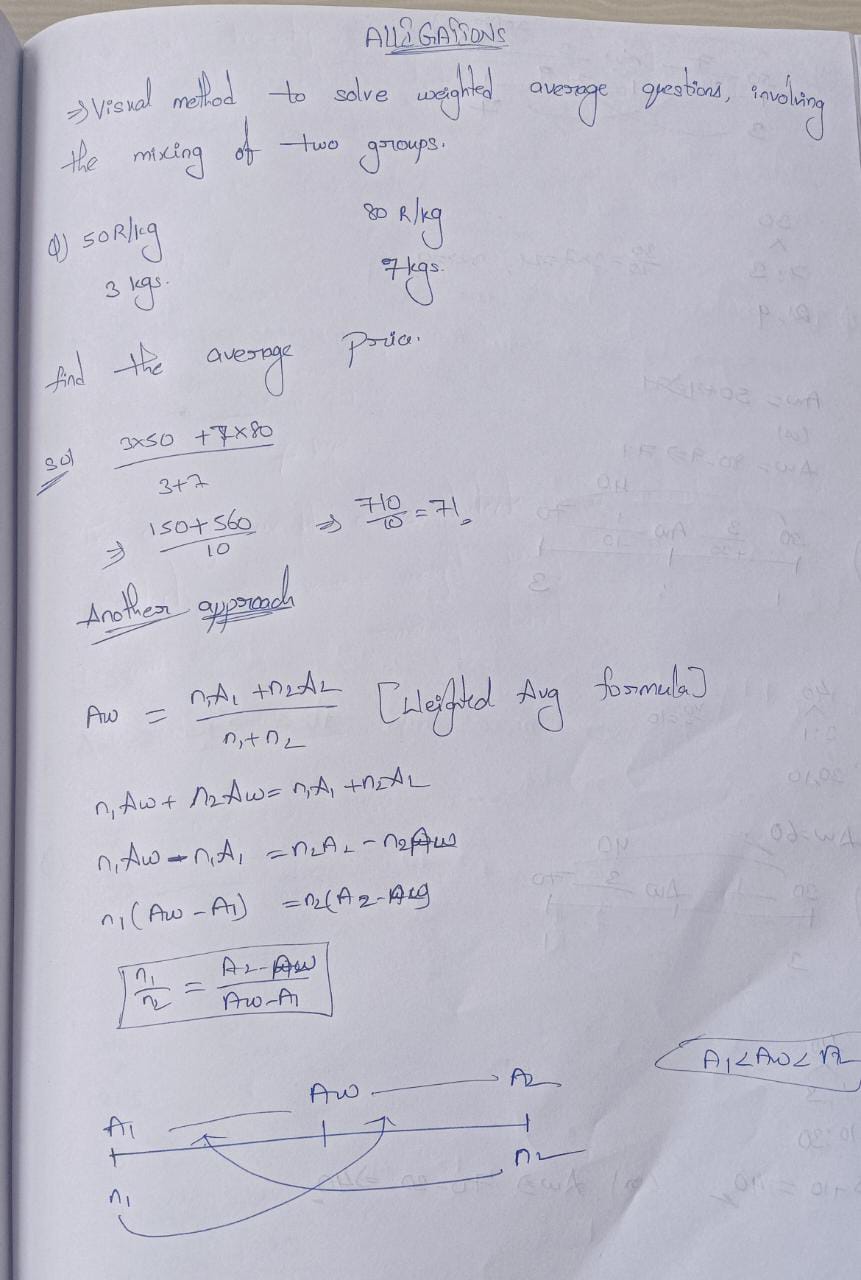 ALLIGATIONS
⇒ Visual method to solve weighted average questions, involving
the mixing of two groups.
Q) 50R/kg 80 R/kg
3 kgs. 7kgs.
find the average price.
Sol 3x50 + 7x80 / 3+7
⇒ 150+560 / 10 ⇒ 710/10 = 71
Another approach
Aw = n₁A₁ + n₂A₂ / n₁+n₂ [Weighted Avg formula]
n₁Aw + n₂Aw = n₁A₁ + n₂A₂
n₁Aw - n₁A₁ = n₂A₂ - n₂Aw
n₁(Aw - A₁) = n₂(A₂-
n₁/n₂ = A₂-Aw / Aw-A₁
A₁<Aw<A₂
A₁ Aw A₂
n₁ n₂